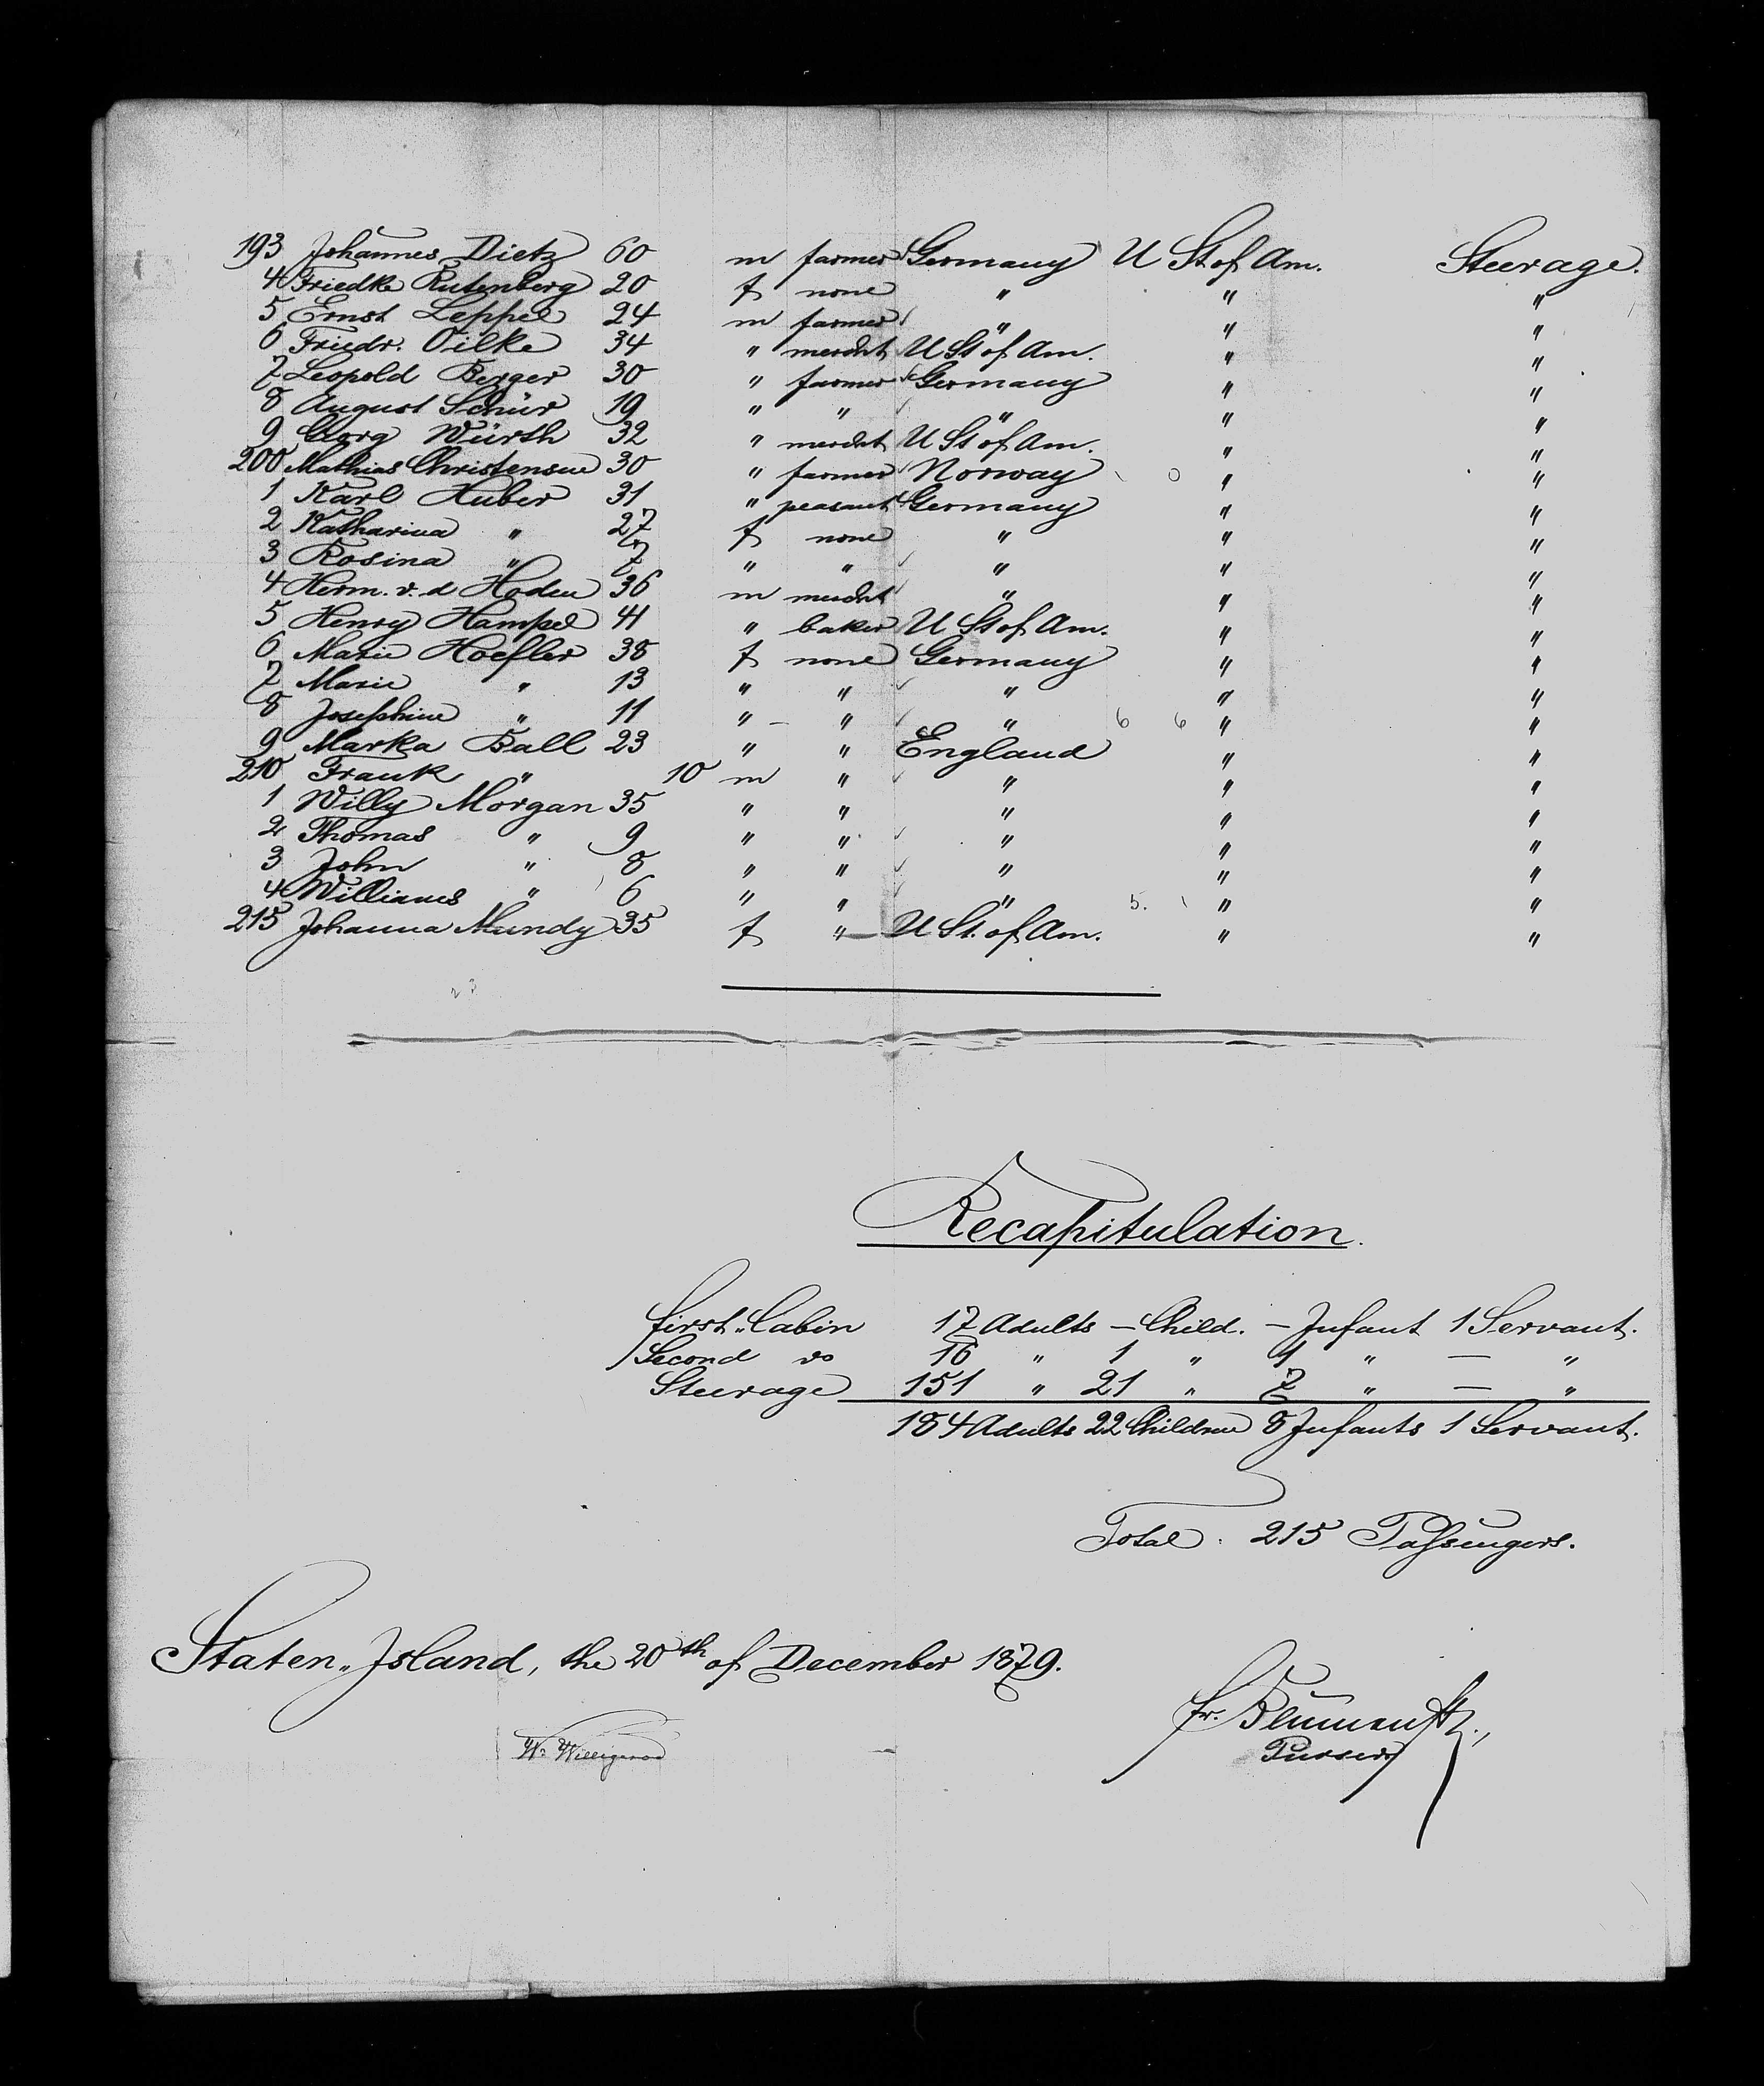 193 Johannes Dietz 60 m farmer Germany U St of Am. Steerage.
4 Friedke Rutenberg 20 f none " " "
5 Ernst Leppel 24 m farmer " " "
6 Friedr. Oilke 34 " mercht U St of Am. " "
7 Leopold Berger 30 " farmer Germany " "
8 August Schür 19 " " " " "
9 Georg Würth 32 " mercht U St of Am. " "
200 Mathias Christensen 30 " farmer Norway " "
1 Karl Huber 31 " peasant Germany " "
2 Katharina " 27 f none " " "
3 Rosina " 7 " " " " "
4 Herm. v. d Hoden 36 m mercht " " "
5 Henry Hampel 41 " baker U St of Am. " "
6 Marie Hoefler 38 f none Germany " "
7 Marie " 13 " " " " "
8 Josephine " 11 " – " " 6 6 " "
9 Marka Ball 23 " " England " "
210 Frank " 10 m " " " "
1 Willy Morgan 35 " " " " "
2 Thomas " 9 " " " " "
3 John " 8 " " " " "
4 Williams " 6 " " " 5. " "
215 Johanna Mundy 35 f " U St. of Am. " "
Recapitulation.
first "Cabin 17 Adults – Child. – Infant 1 Servant.
Second do 16 " 1 " 1 " – "
Steerage 151 " 21 " 7 " – "
184 Adults 22 Children 8 Infants 1 Servant.
Total. 215 Passengers.
Staten "Island, the 20th of December 1879.
W. Willigerod
fr.
Purser